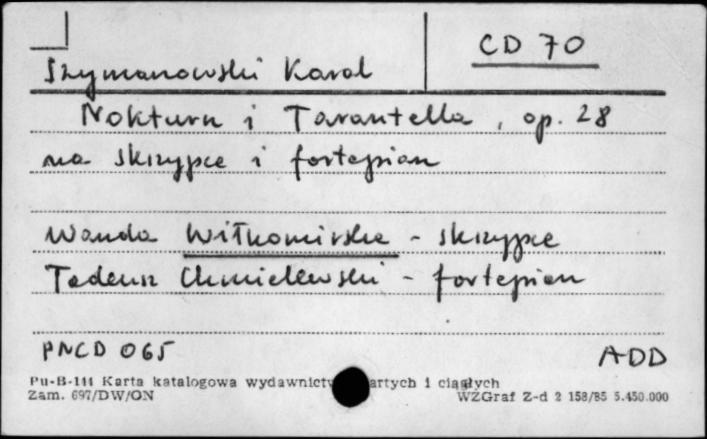 CD 70
Szymanowski Karol
Nokturn i Tarantella, op. 28
na skrzypce i fortepian
Wanda Wiłkomirska - skrzypce
Tadeusz Chmielewski - fortepian
PNCD 065 ADD
Pu-B-111 Karta katalogowa wydawnictw artych i ciągłych
Zam. 697/DW/ON WZGraf Z-d 2 158/85 5.450.000